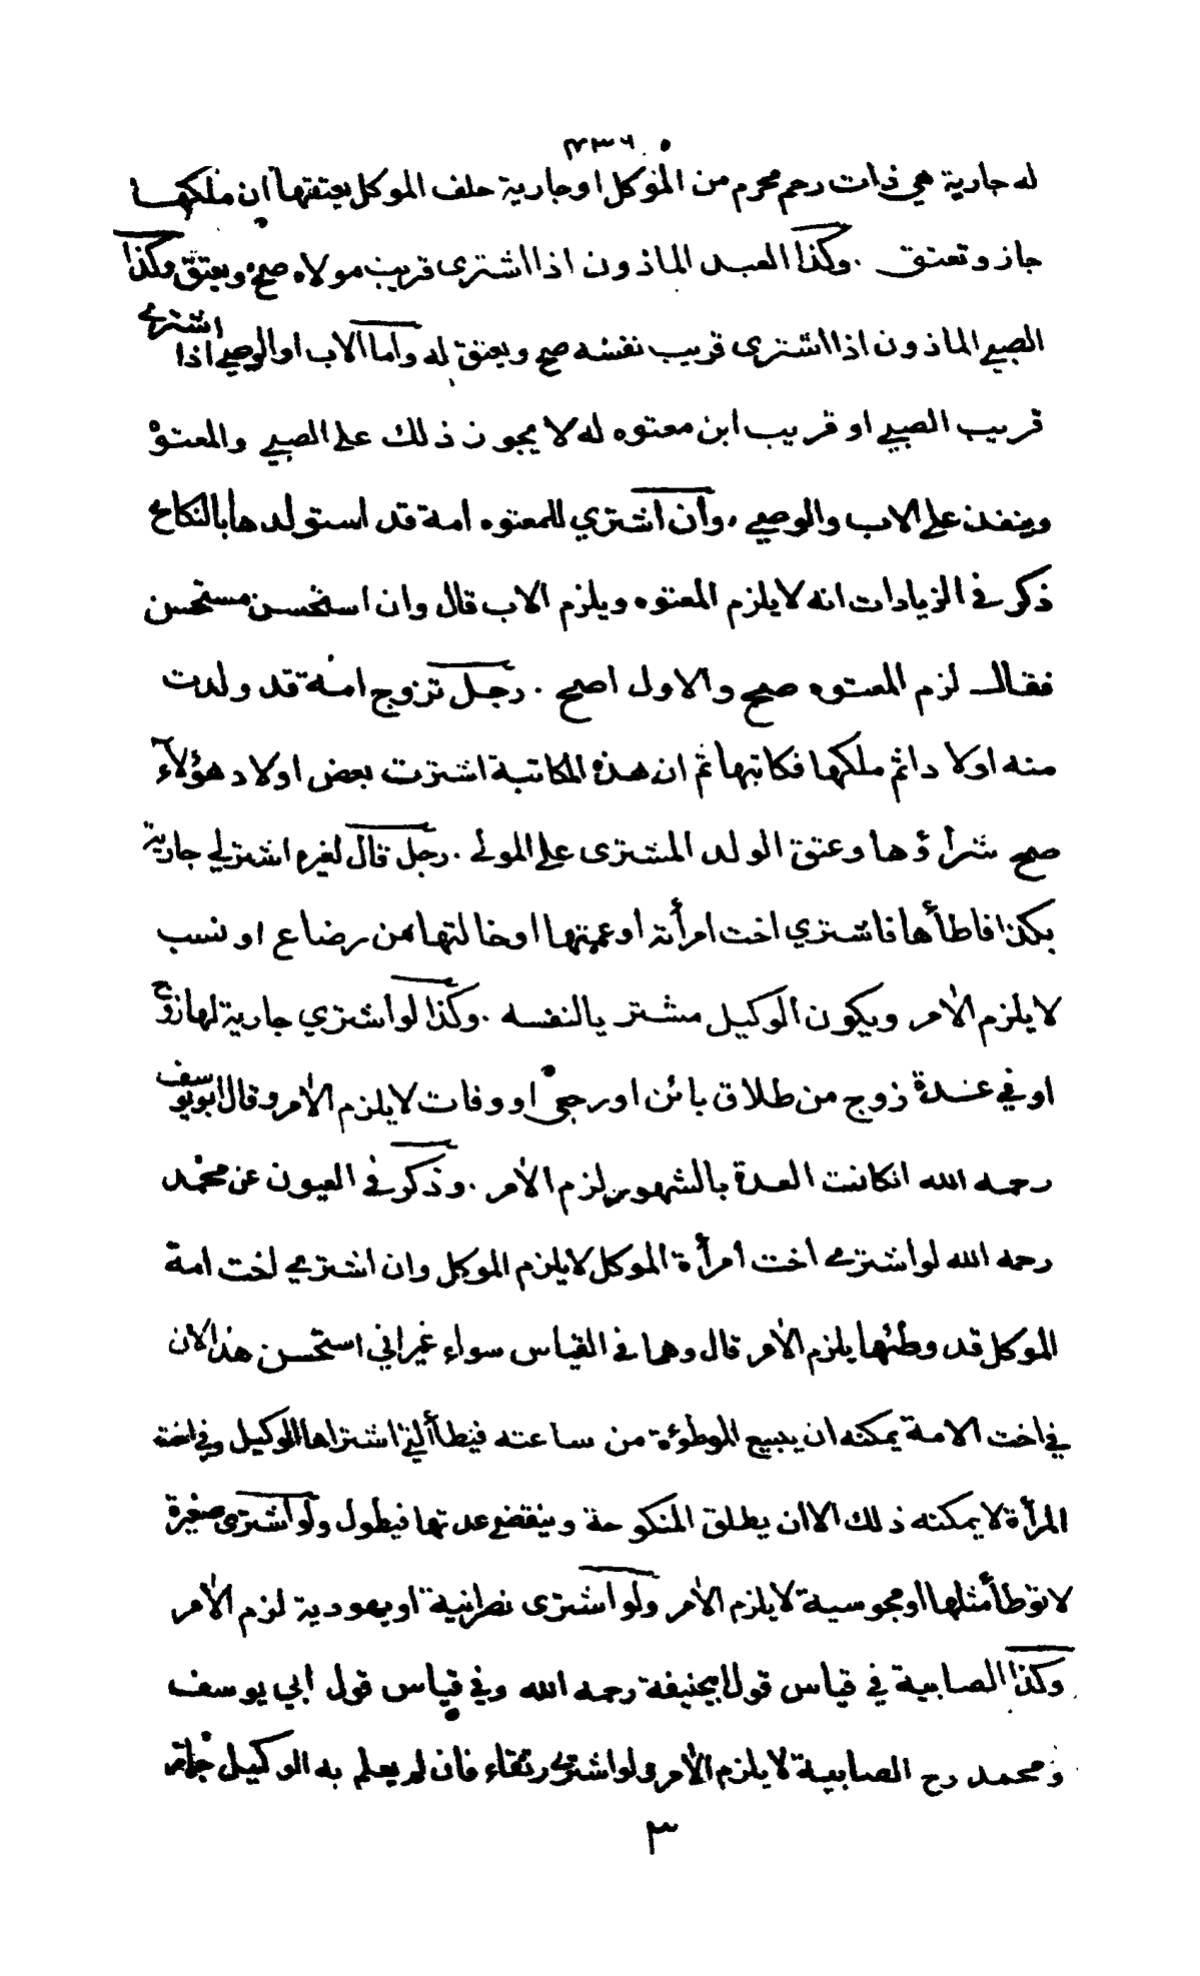 ٤٣٦
له جارية هي ذات رحم محرم من الموكل او جارية حلف الموكل بعتقها ان ملكها
جاز وتعتق . وكذا العبد الماذون اذا اشترى قريب مولاه صح ويعتق وكذا
الصبي الماذون اذا اشترى قريب نفسه صح ويعتق له واما الاب او الوصي اذا اشترى
قريب الصبي او قريب ابن معتوه له لا يجوز ذلك على الصبي والمعتوه
وينفذ على الاب والوصي . وان اشترى للمعتوه امة قد استولدها بالنكاح
ذكر في الزيادات انه لا يلزم المعتوه ويلزم الاب قال وان استحسن مستحسن
فقال لزم المعتوه صح والاول اصح . رجل تزوج امة قد ولدت
منه اولادا ثم ملكها فكاتبها ثم ان هذه المكاتبة اشترت بعض اولاد هؤلآء
صح شرأؤها وعتق الولد المشترى على المولى . رجل قال لغيره اشتر لي جارية
بكذا فاطأها فاشتري اخت امرأته او عمتها او خالتها من رضاع او نسب
لا يلزم الامر ويكون الوكيل مشتريا لنفسه . وكذا لو اشترى جارية لها زوج
او في عدة زوج من طلاق بائن او رجعى او وفات لا يلزم الامر وقال ابو يوسف
رحمه الله انكانت العدة بالشهور لزم الامر . وذكر في العيون عن محمد
رحمه الله لو اشترى اخت امرأة الموكل لا يلزم الموكل وان اشترى اخت امة
الموكل قد وطئها يلزم الامر قال وهما في القياس سواء غير اني استحسن هذا لان
في اخت الامة يمكنه ان يبيع الموطؤة من ساعته فيطأ التي اشتراها الوكيل وفي اخت
المرأة لا يمكنه ذلك الا ان يطلق المنكوحة وينقضي عدتها فيطول ولو اشترى صغيرة
لا توطأ مثلها او مجوسية لا يلزم الامر ولو اشترى نصرانية او يهودية لزم الامر
وكذا الصابية في قياس قول ابيحنيفة رحمه الله وفي قياس قول ابي يوسف
ومحمد رح الصابية لا يلزم الامر ولو اشترى رتقاء فان لم يعلم به الوكيل جاز
٣